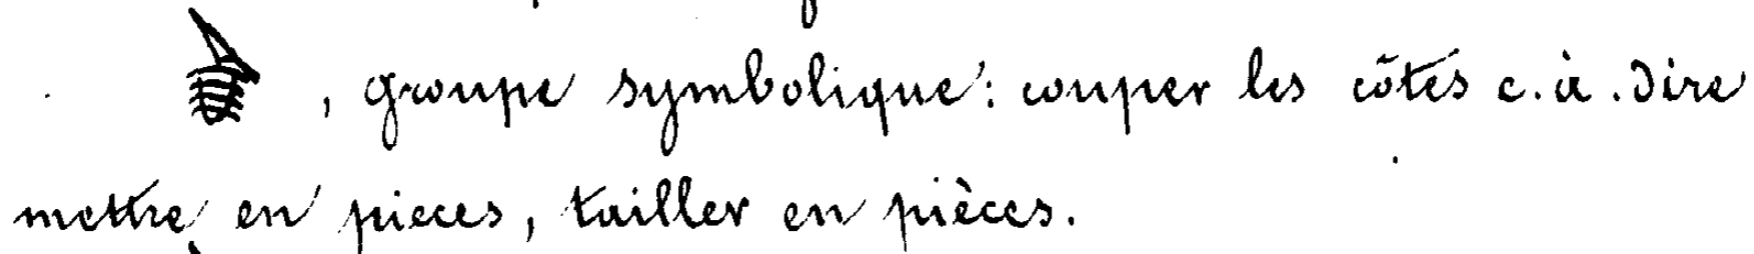 , groupe symbolique: couper les côtes c.à.dire
mettre en pieces, tailler en pièces.